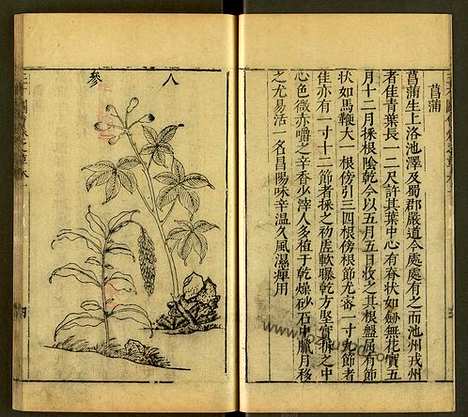 菖蒲
菖蒲生上洛池澤及蜀郡嚴道今處處有之而池州戎州
者佳青葉長一二尺許其葉中心有脊狀如劍無花實五
月十二月採根陰乾今以五月五日收之其根盤屈有節
狀如馬鞭大一根傍引三四根傍根節尤密一寸九節者
佳亦有一寸十二節者採之初虛軟曝乾方堅實折之中
心色微赤嚼之辛香少滓人多植于乾燥砂石中臘月移
之尤易活一名昌陽味辛溫久風濕痺用
人參